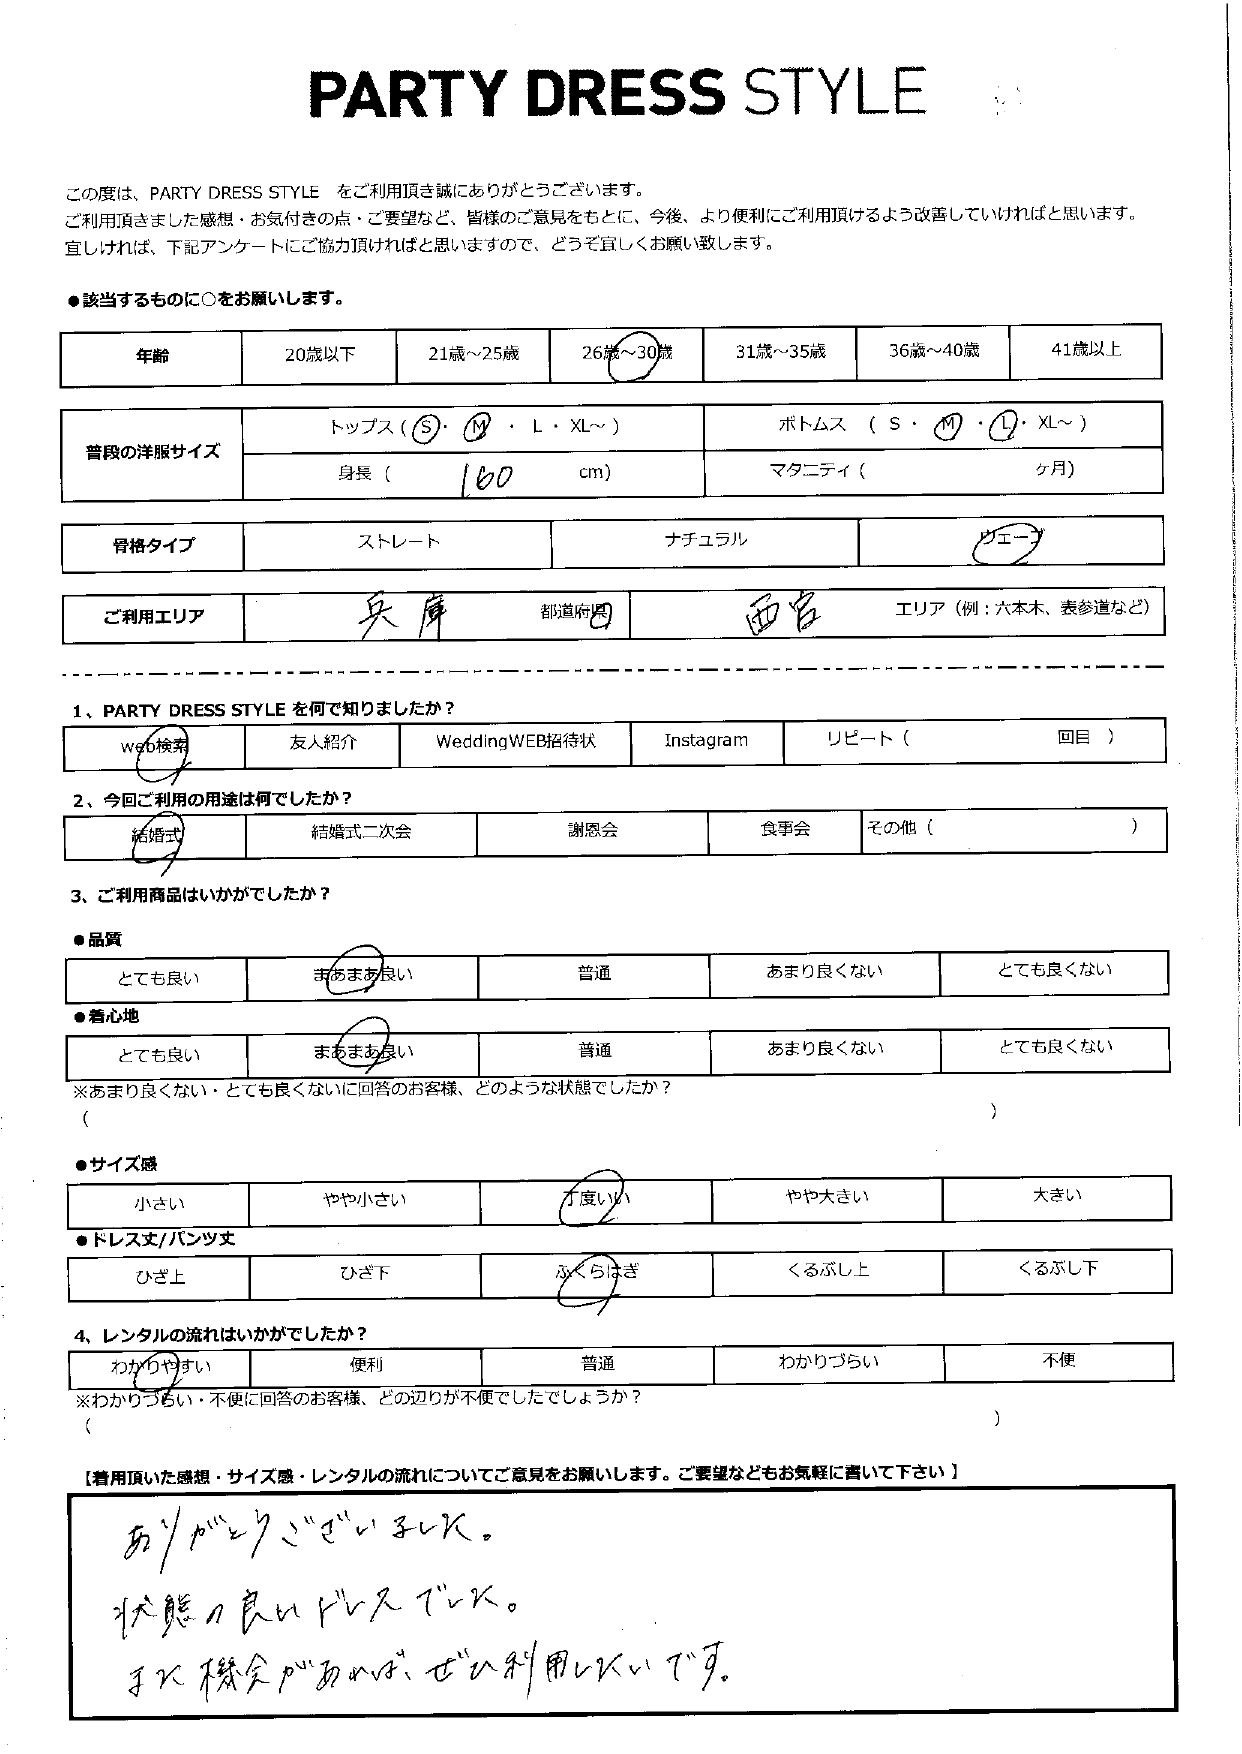 PARTY DRESS STYLE
この度は、PARTY DRESS STYLE をご利用頂き誠にありがとうございます。
ご利用頂きました感想・お気付きの点・ご要望など、皆様のご意見をもとに、今後、より便利にご利用頂けるよう改善していければと思います。
宜しければ、下記アンケートにご協力頂ければと思いますので、どうぞ宜しくお願い致します。
●該当するものに○をお願いします。
年齢 20歳以下 21歳～25歳 26歳～30歳 31歳～35歳 36歳～40歳 41歳以上
普段の洋服サイズ
トップス ( S ・ M ・ L ・ XL～ ) ボトムス ( S ・ M ・ L ・ XL～ )
身長 ( 160 cm) マタニティ ( ヶ月)
骨格タイプ ストレート ナチュラル ウェーブ
ご利用エリア 兵庫 都道府県 西宮 エリア（例：六本木、表参道など）
1、PARTY DRESS STYLE を何で知りましたか？
web検索 友人紹介 WeddingWEB招待状 Instagram リピート ( 回目 )
2、今回ご利用の用途は何でしたか？
結婚式 結婚式二次会 謝恩会 食事会 その他 ( )
3、ご利用商品はいかがでしたか？
●品質
とても良い まあまあ良い 普通 あまり良くない とても良くない
●着心地
とても良い まあまあ良い 普通 あまり良くない とても良くない
※あまり良くない・とても良くないに回答のお客様、どのような状態でしたか？
( )
●サイズ感
小さい やや小さい 丁度いい やや大きい 大きい
●ドレス丈/パンツ丈
ひざ上 ひざ下 ふくらはぎ くるぶし上 くるぶし下
4、レンタルの流れはいかがでしたか？
わかりやすい 便利 普通 わかりづらい 不便
※わかりづらい・不便に回答のお客様、どの辺りが不便でしたでしょうか？
( )
【着用頂いた感想・サイズ感・レンタルの流れについてご意見をお願いします。ご要望などもお気軽に書いて下さい 】
ありがとうございました。
状態の良いドレスでした。
また機会があれば、ぜひ利用したいです。